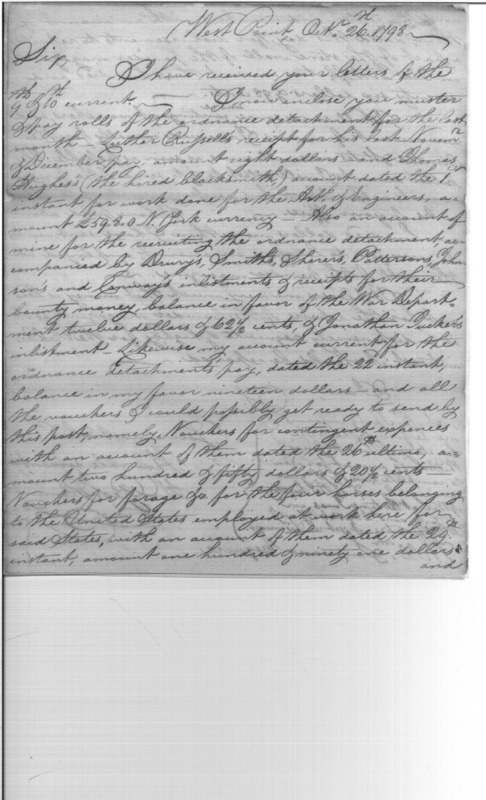 West Point, Octr. 26th. 1798
Sir
I have received your letters of the
9th & 10th current. I now enclose you muster
& pay rolls of the ordnance detachment for the last
month — Luther Russells receipt for his last Novemr.
& December pay, amount eight dollars — and Thomas
Hughes's (the hired blacksmith) account dated the 1.
instant for work done for the Art. & Engineers, a-
mount £59.8.0 N. York currency — Also an account of
mine for the recruiting the ordnance detachment, ac-
companied by Drury's, Smiths, Sherers, Pattersons, John-
son's and Conways inlistments & receipts for their
bounty money, balance in favor of the War Depart-
ment twelve dollars & 62½ cents, & Jonathan Tuckers
inlistment — Likewise my account current for the
ordnance detachments pay, dated the 22 instant,
balance in my favor nineteen dollars — and all
the vouchers I could possibly get ready to send by
this post, namely, Vouchers for contingent expences
with an account of them dated the 26th ultimo, a-
mount two hundred & fifty dollars & 20½ cents —
Vouchers for forage &c for the four horses belonging
to the United States employed at work here for
said States, with an account of them dated the 24th
instant, amount one hundred & ninety one dollars
and